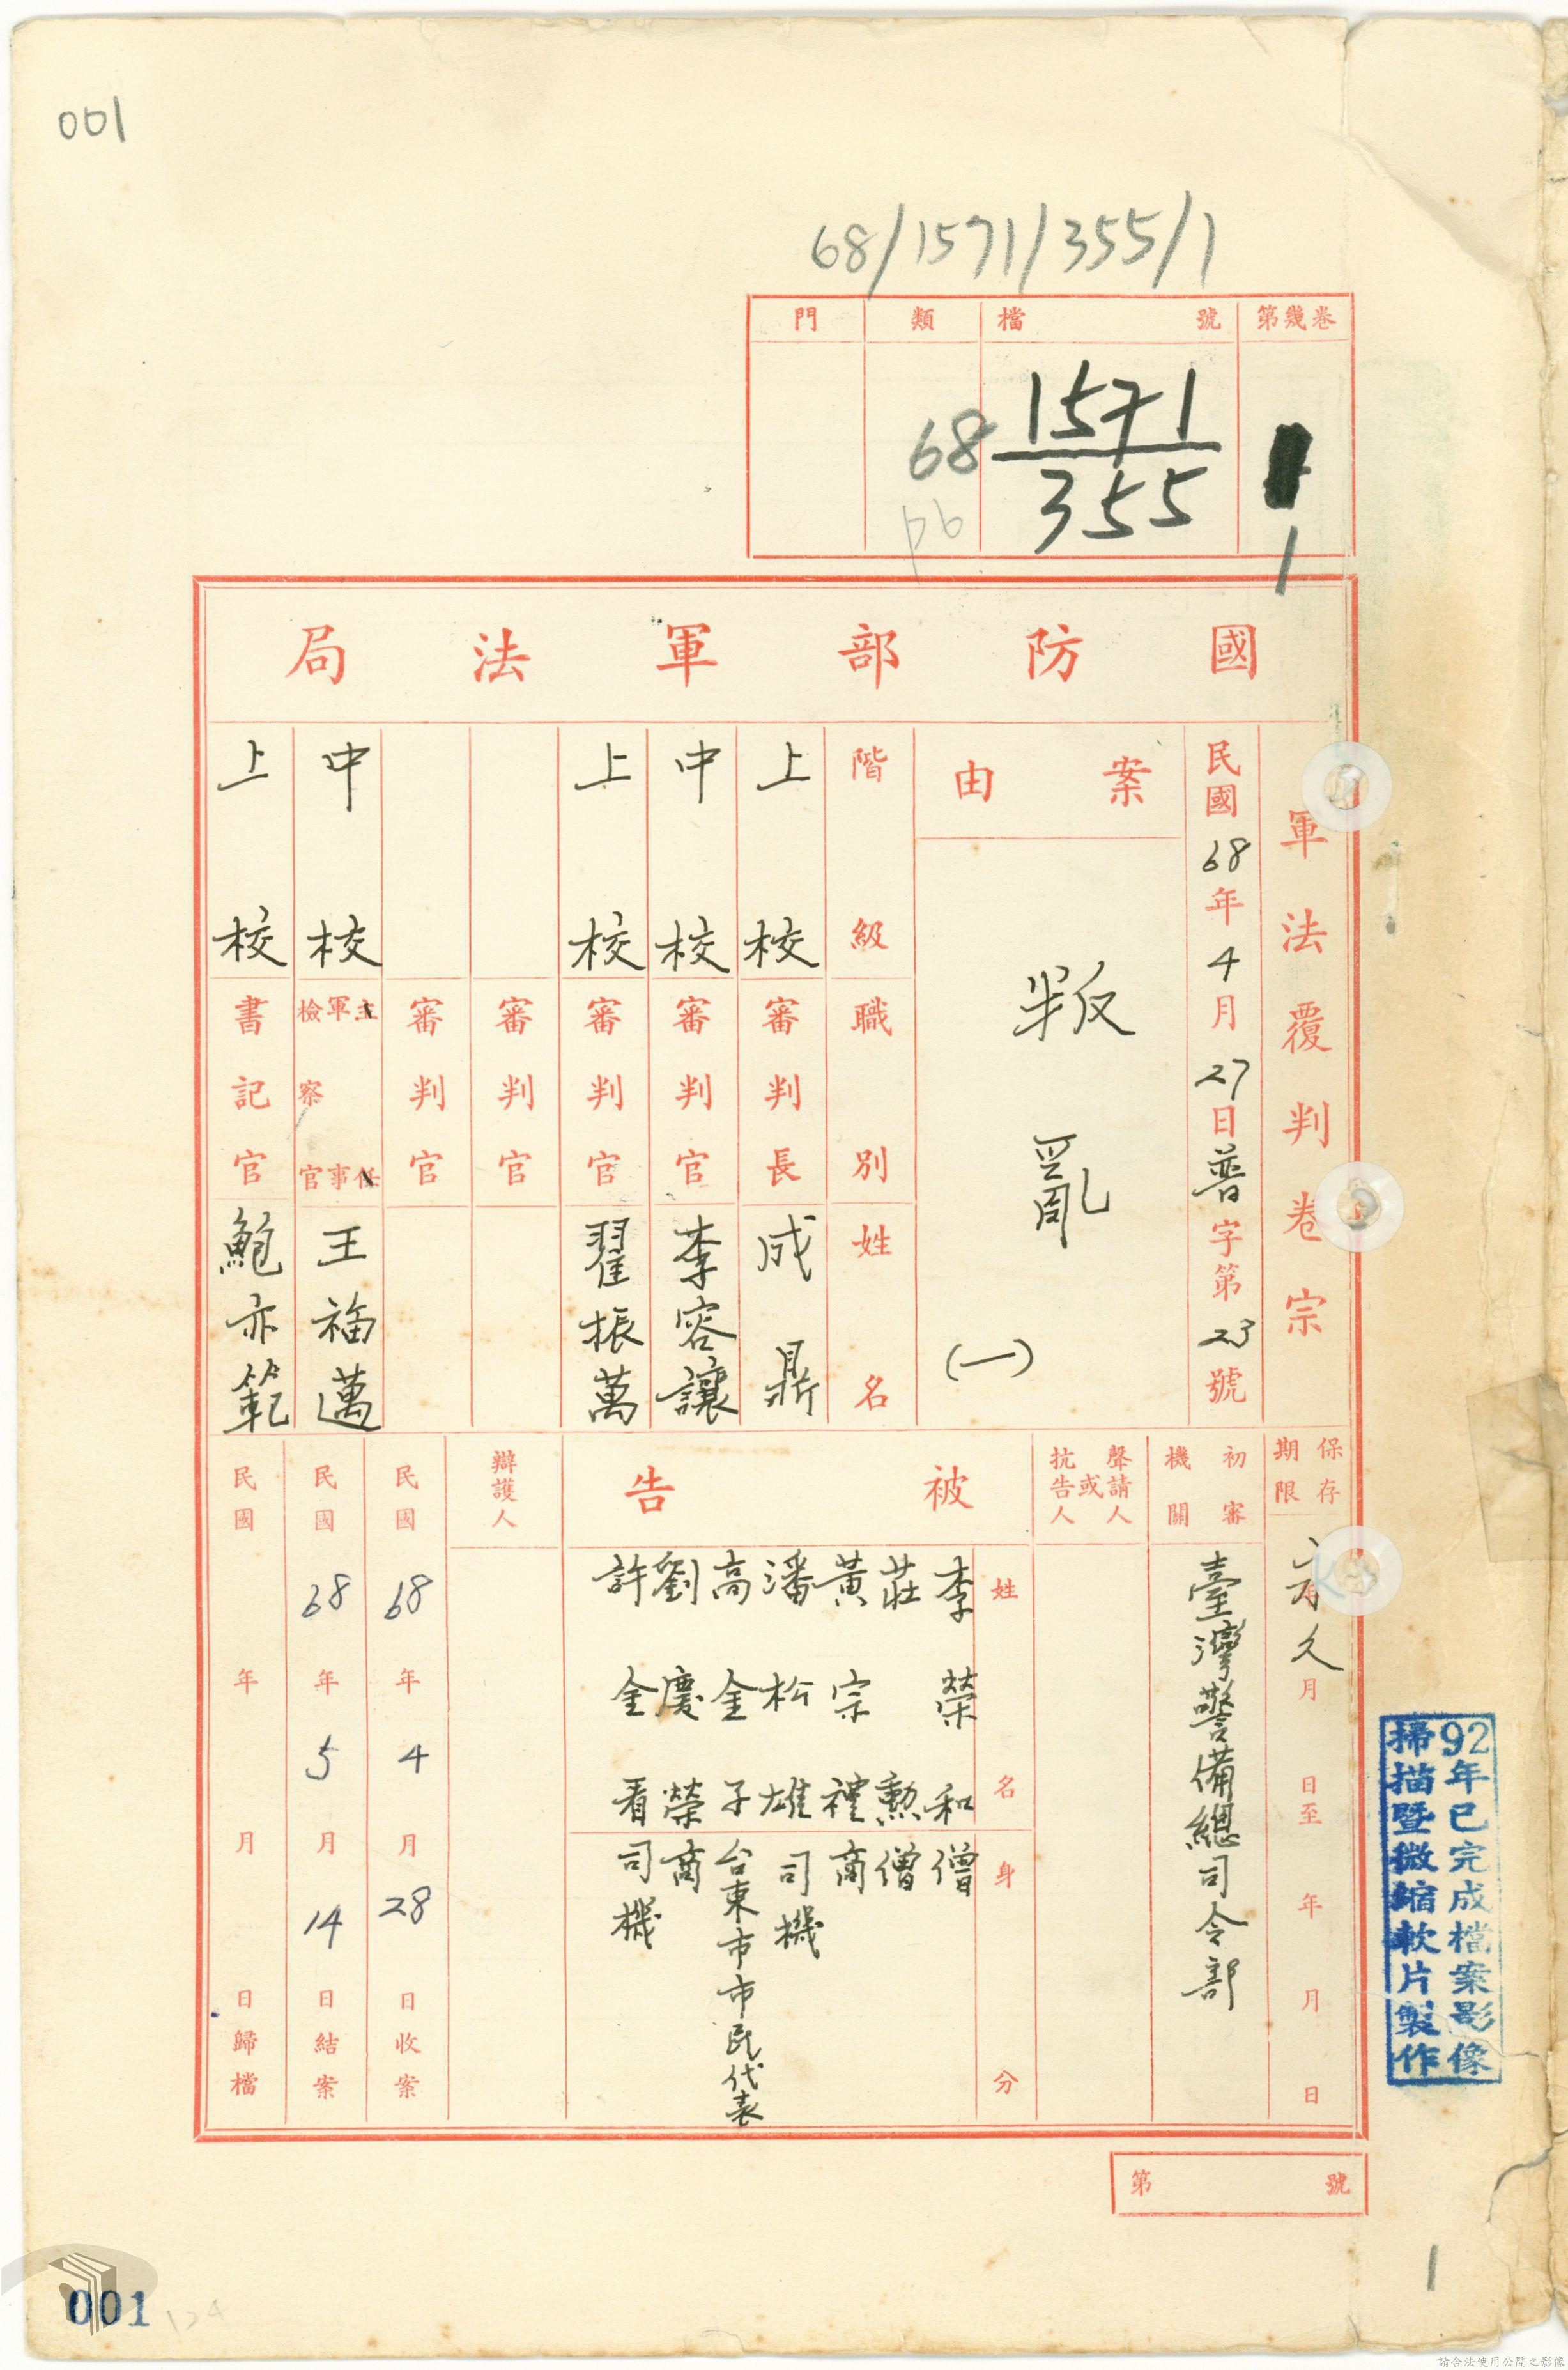 001
68/1571/355/1
第幾卷
1
檔號
1571
355
類
68
門
國防部軍法局
軍法覆判卷宗
民國68年4月27日普字第23號
案由
叛亂
(一)
階級 職別 姓名
上校 審判長 成鼎
中校 審判官 李容讓
上校 審判官 翟振萬
審判官
審判官
中校 主任軍事檢察官 王福邁
上校 書記官 鮑亦範
保存期限
永久
月 日至 年 月 日
初審機關
臺灣警備總司令部
聲請人或抗告人
被告
姓名 身分
李榮和 僧
莊勳 僧
黃宗禮 商
潘松雄 司機
高金子 台東市市民代表
劉慶榮 商
許金看 司機
辯護人
民國68年4月28日收案
民國68年5月14日結案
民國 年 月 日歸檔
第 號
92年已完成檔案影像
掃描暨微縮軟片製作
1
001
請合法使用公開之影像